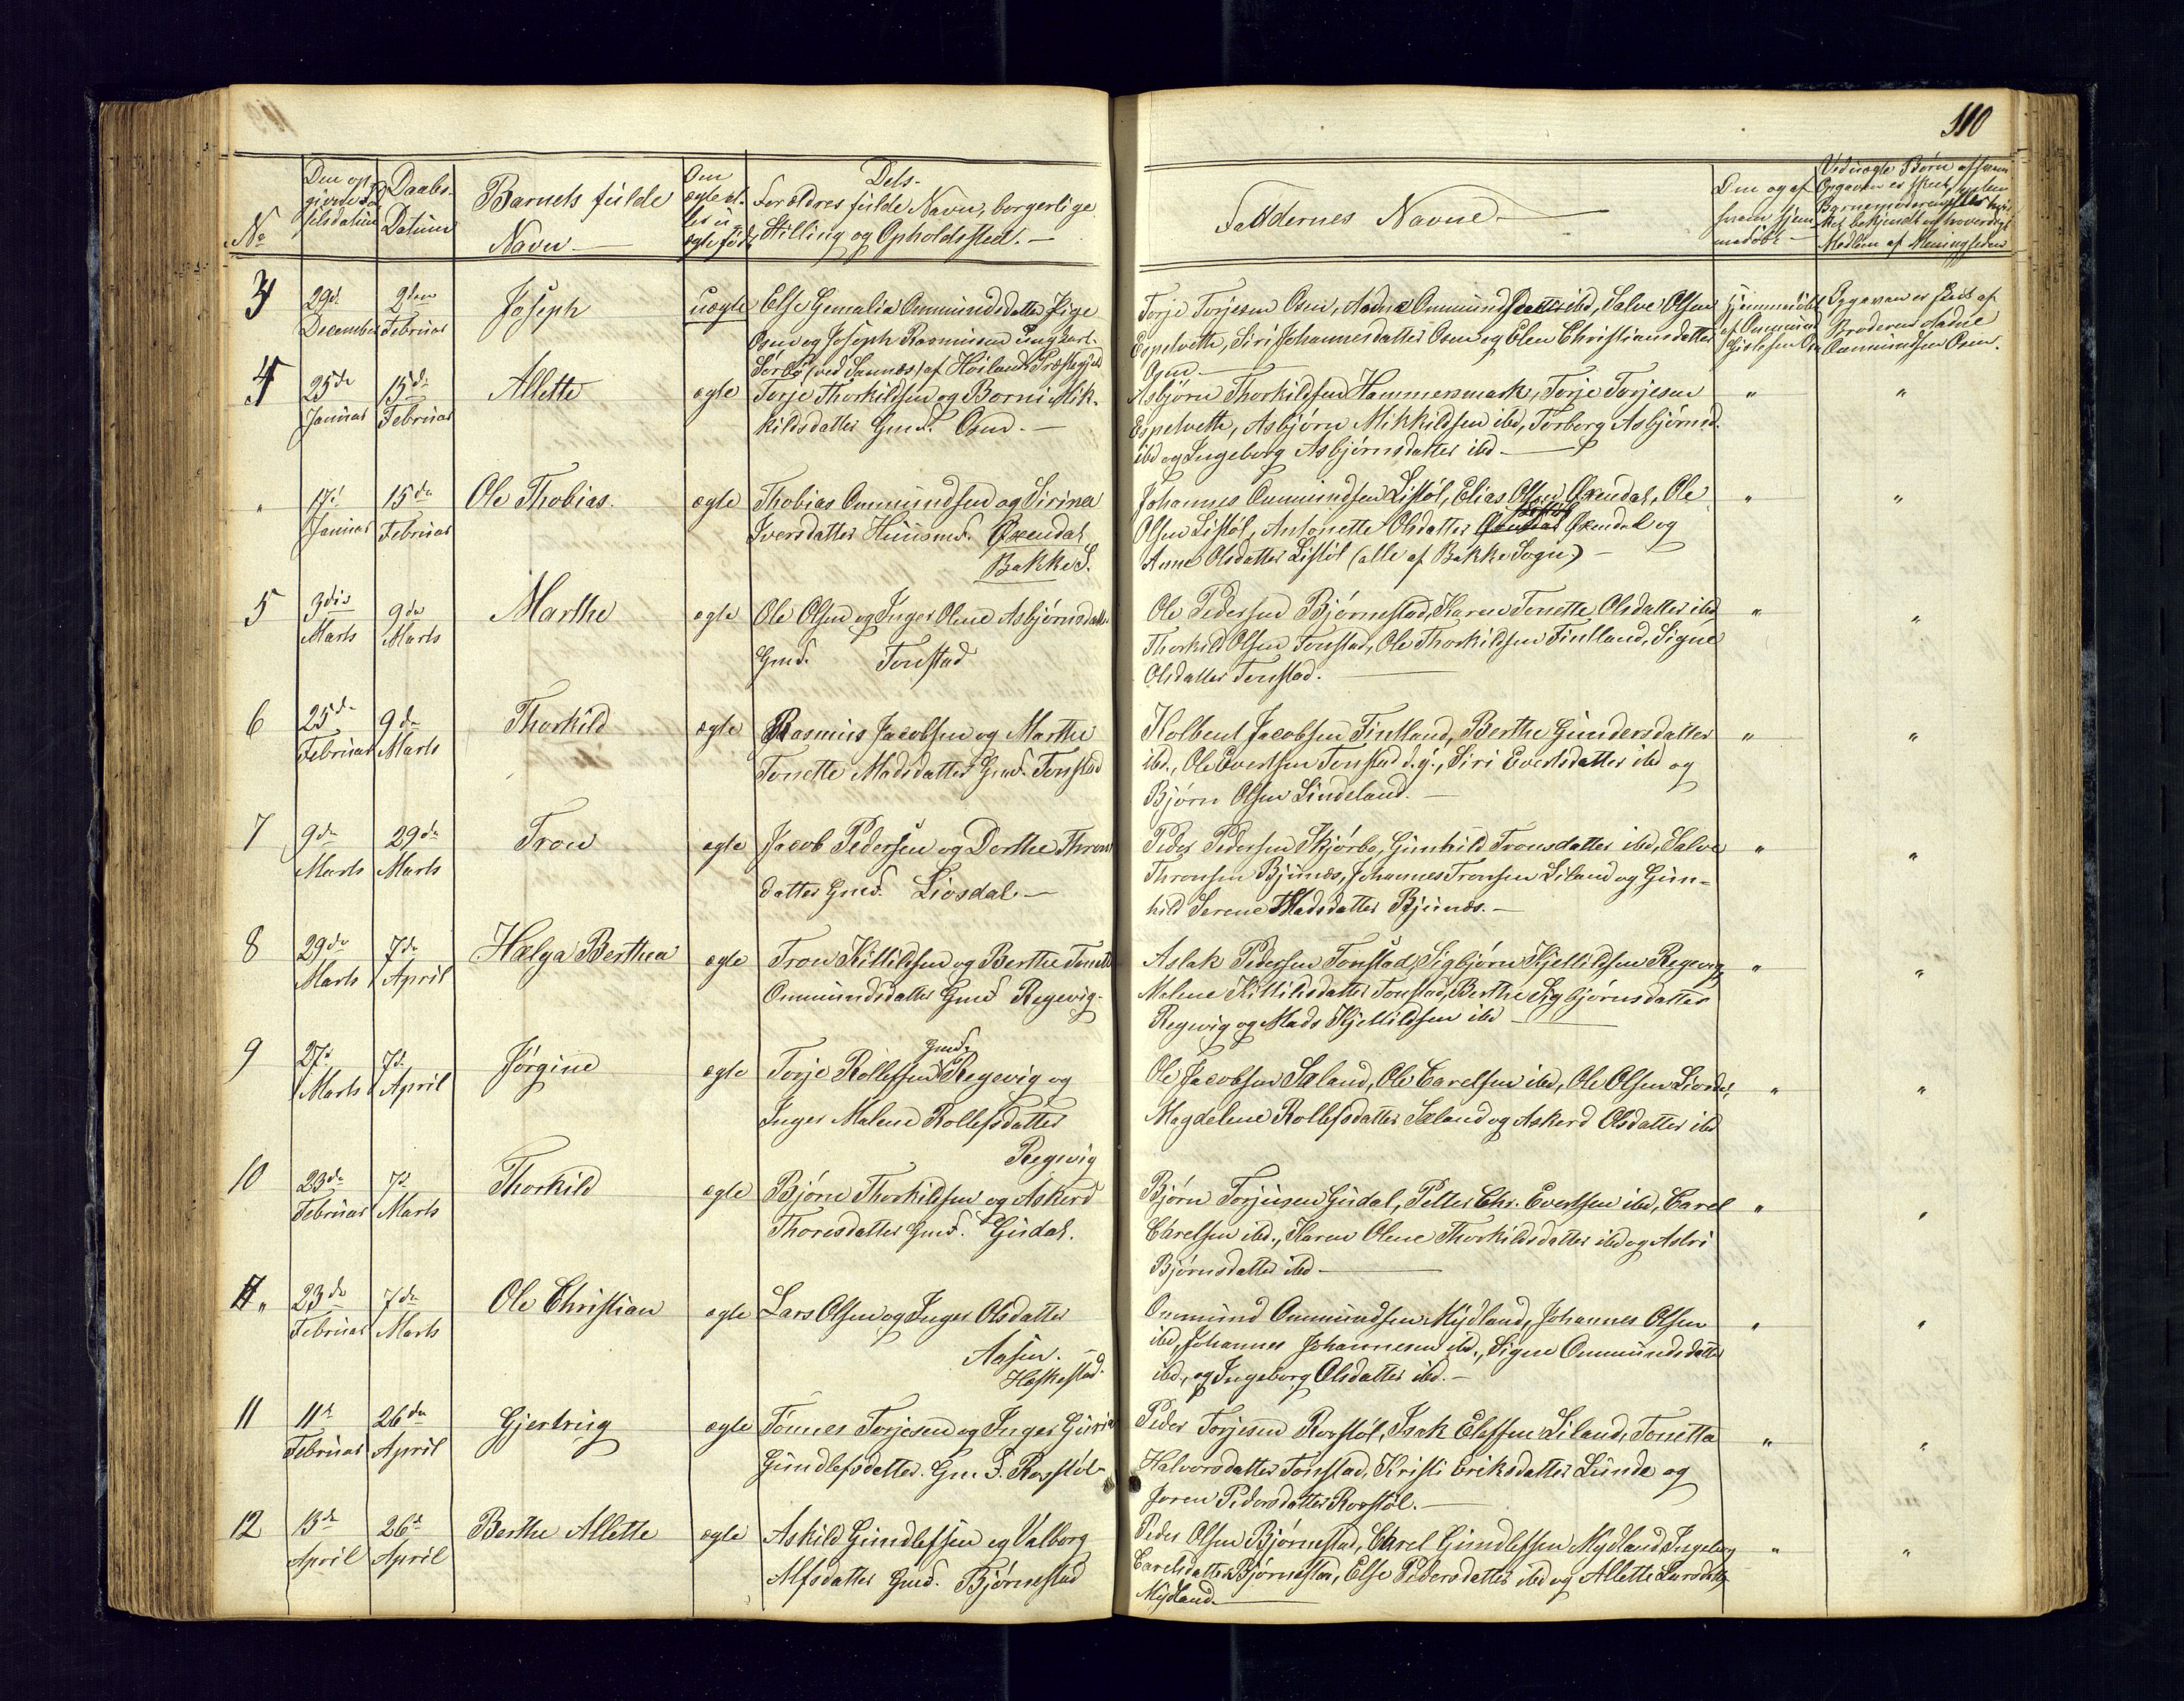 110
No
Den op
givne Fød
selsdatum
Daabs-
Datum
Barnets fulde
Navn
Om
ægte el-
ler u
ægte født
Dets
Forældres fulde Navn, borgerlige
Stilling og Opholdssted.
Faddernes Navne
Om og af
hvem hjem
medøbt
Ved uægte Børn af hvem
Opgaven er skeet,
Barnemoderen
bekjendt
Medlem af Menigheden
3
29d
December
2den
Februar
Joseph
uægte
Else Gemalia Ommundsdatter Pige
Osen og Joseph Rasmusen Ungkarl
(ved Sannæs) af Høilands Præstegjeld
Torje Torjesen Osen, Aadne Ommundsen ibd, Salve Olsen
Espetveth, Siri Johannesdatter Osen og Elen Christiansdatter
Osen
Hjemmedøbt
af Ommund
Gislesen Osen
Opgaven er skeet af
Broderen Aadne
Ommundsen Osen.
4
25de
Januar
15de
Februar
Allette
ægte
Torje Thorkildsen og Borni Mik-
kildsdatter Gmd. Osen.
Asbjørn Thorkildsen Hammersmark, Torje Torjesen
Espetveth, Asbjørn Mikkildsen ibd, Torborg Asbjørnsd.
ibd og Ingeborg Asbjørnsdatter ibd
" "
"
17d
Januar
15de
Februar
Ole Thobias.
ægte
Thobias Ommundsen og Sirina
Iversdatter Huusmd. Øxendal
Bakke S.
Johannes Ommundsen Listøl, Elias Olsen Øxendal, Ole
Olsen Listøl, Antonette Olsdatter Øxendal og
Anne Olsdatter Listøl (alle af Bakke Sogn)
" "
5
3die
Marts
9de
Marts
Marthe
ægte
Ole Olsen og Inger Olene Asbjørnsdatter
Gmd. Tonstad
Ole Pedersen Bjørnestad, Karen Tonette Olsdatter ibd,
Thorkild Olsen Tonstad, Ole Thorkildsen Fintland, Signe
Olsdatter Tonstad.
" "
6
25de
Februar
9de
Marts
Thorkild
ægte
Rasmus Jacobsen og Marthe
Tonette Madsdatter Gmd. Tonstad
Kolbent Jacobsen Fintland, Berthe Gundersdatter
ibd., Ole Evertsen Tonstad d.y., Siri Evertsdatter ibd og
Bjørn Olsen Lindeland.
" "
7
9de
Marts
29de
Marts
Tron
ægte
Jacob Pedersen og Dorthe Throns
datter Gmd. Liosdal.
Peder Pedersen Skjørbo, Gunhild Tronsdatter ibd, Salve
Thronsen Bjunes, Johannes Tronsen Liland og Gun-
hild Serene Madsdatter Bjunæs.
" "
8
29de
Marts
7de
April
Helga Berthea
ægte
Tron Kittildsen og Berthe Tonette
Ommundsdatter Gmd Regevig.
Aslak Pedersen Tonstad, Sigbjørn Kjettildsen Regevig,
Malene Kittildsdatter Tonstad, Berthe Sigbjørnsdatter
Regevig og Mads Kjettildsen ibd
" "
9
27d
Marts
7d
April
Jørgine
ægte
Gmd.
Torje Rollefsen Regevig og
Inger Malene Rollefsdatter
Regevig
Ole Jacobsen Sæland, Ole Carelsen ibd, Ole Olsen Liosdal,
Magdelene Rollefsdatter Sæland og Askerd Olsdatter ibd
" "
10
23de
Februar
7d
Marts
Thorkild
ægte
Bjørn Thorkildsen og Askerd
Thoresdatter Gmd. Gudal.
Bjørn Torjusen Gudal, Petter Chr. Evertsen ibd, Carel
Carelsen ibd., Karen Olene Thorkildsdatter ibd og Aslri
Bjørnsdatter ibd
" "
"
23de
Februar
7de
Marts
Ole Christian
ægte
Lars Olsen og Inger Olsdatter
Aasen.
Heskestad.
Ommund Ommundsen Mydland, Johannes Olsen
ibd, Johannes Johannesen ibd., Signe Ommundsdatter
ibd, og Ingeborg Olsdatter ibd.
" "
11
11d
Februar
26de
April
Gjertrug
ægte
Tønnes Torjesen og Inger Guria
Gundlefsdatter. Gm.d. Rosstøl
Peder Torjesen Rosstøl, Isak Elefsen Liland, Tonetta
Halvorsdatter Tonstad, Kristi Eriksdatter Lunde og
Joren Pedersdatter Rosstøl.
" "
12
13de
April
26d
April
Berthe Allette
ægte
Askild Gundlefsen og Valborg
Alfsdatter Gmd. Bjørnestad
Peder Olsen Bjørnestad, Carel Gundlefsen Mydland, Ingeborg
Carelsdatter Bjørnestad, Else Pedersdatter ibd og Allette Larsdatter
Mydland.
" "